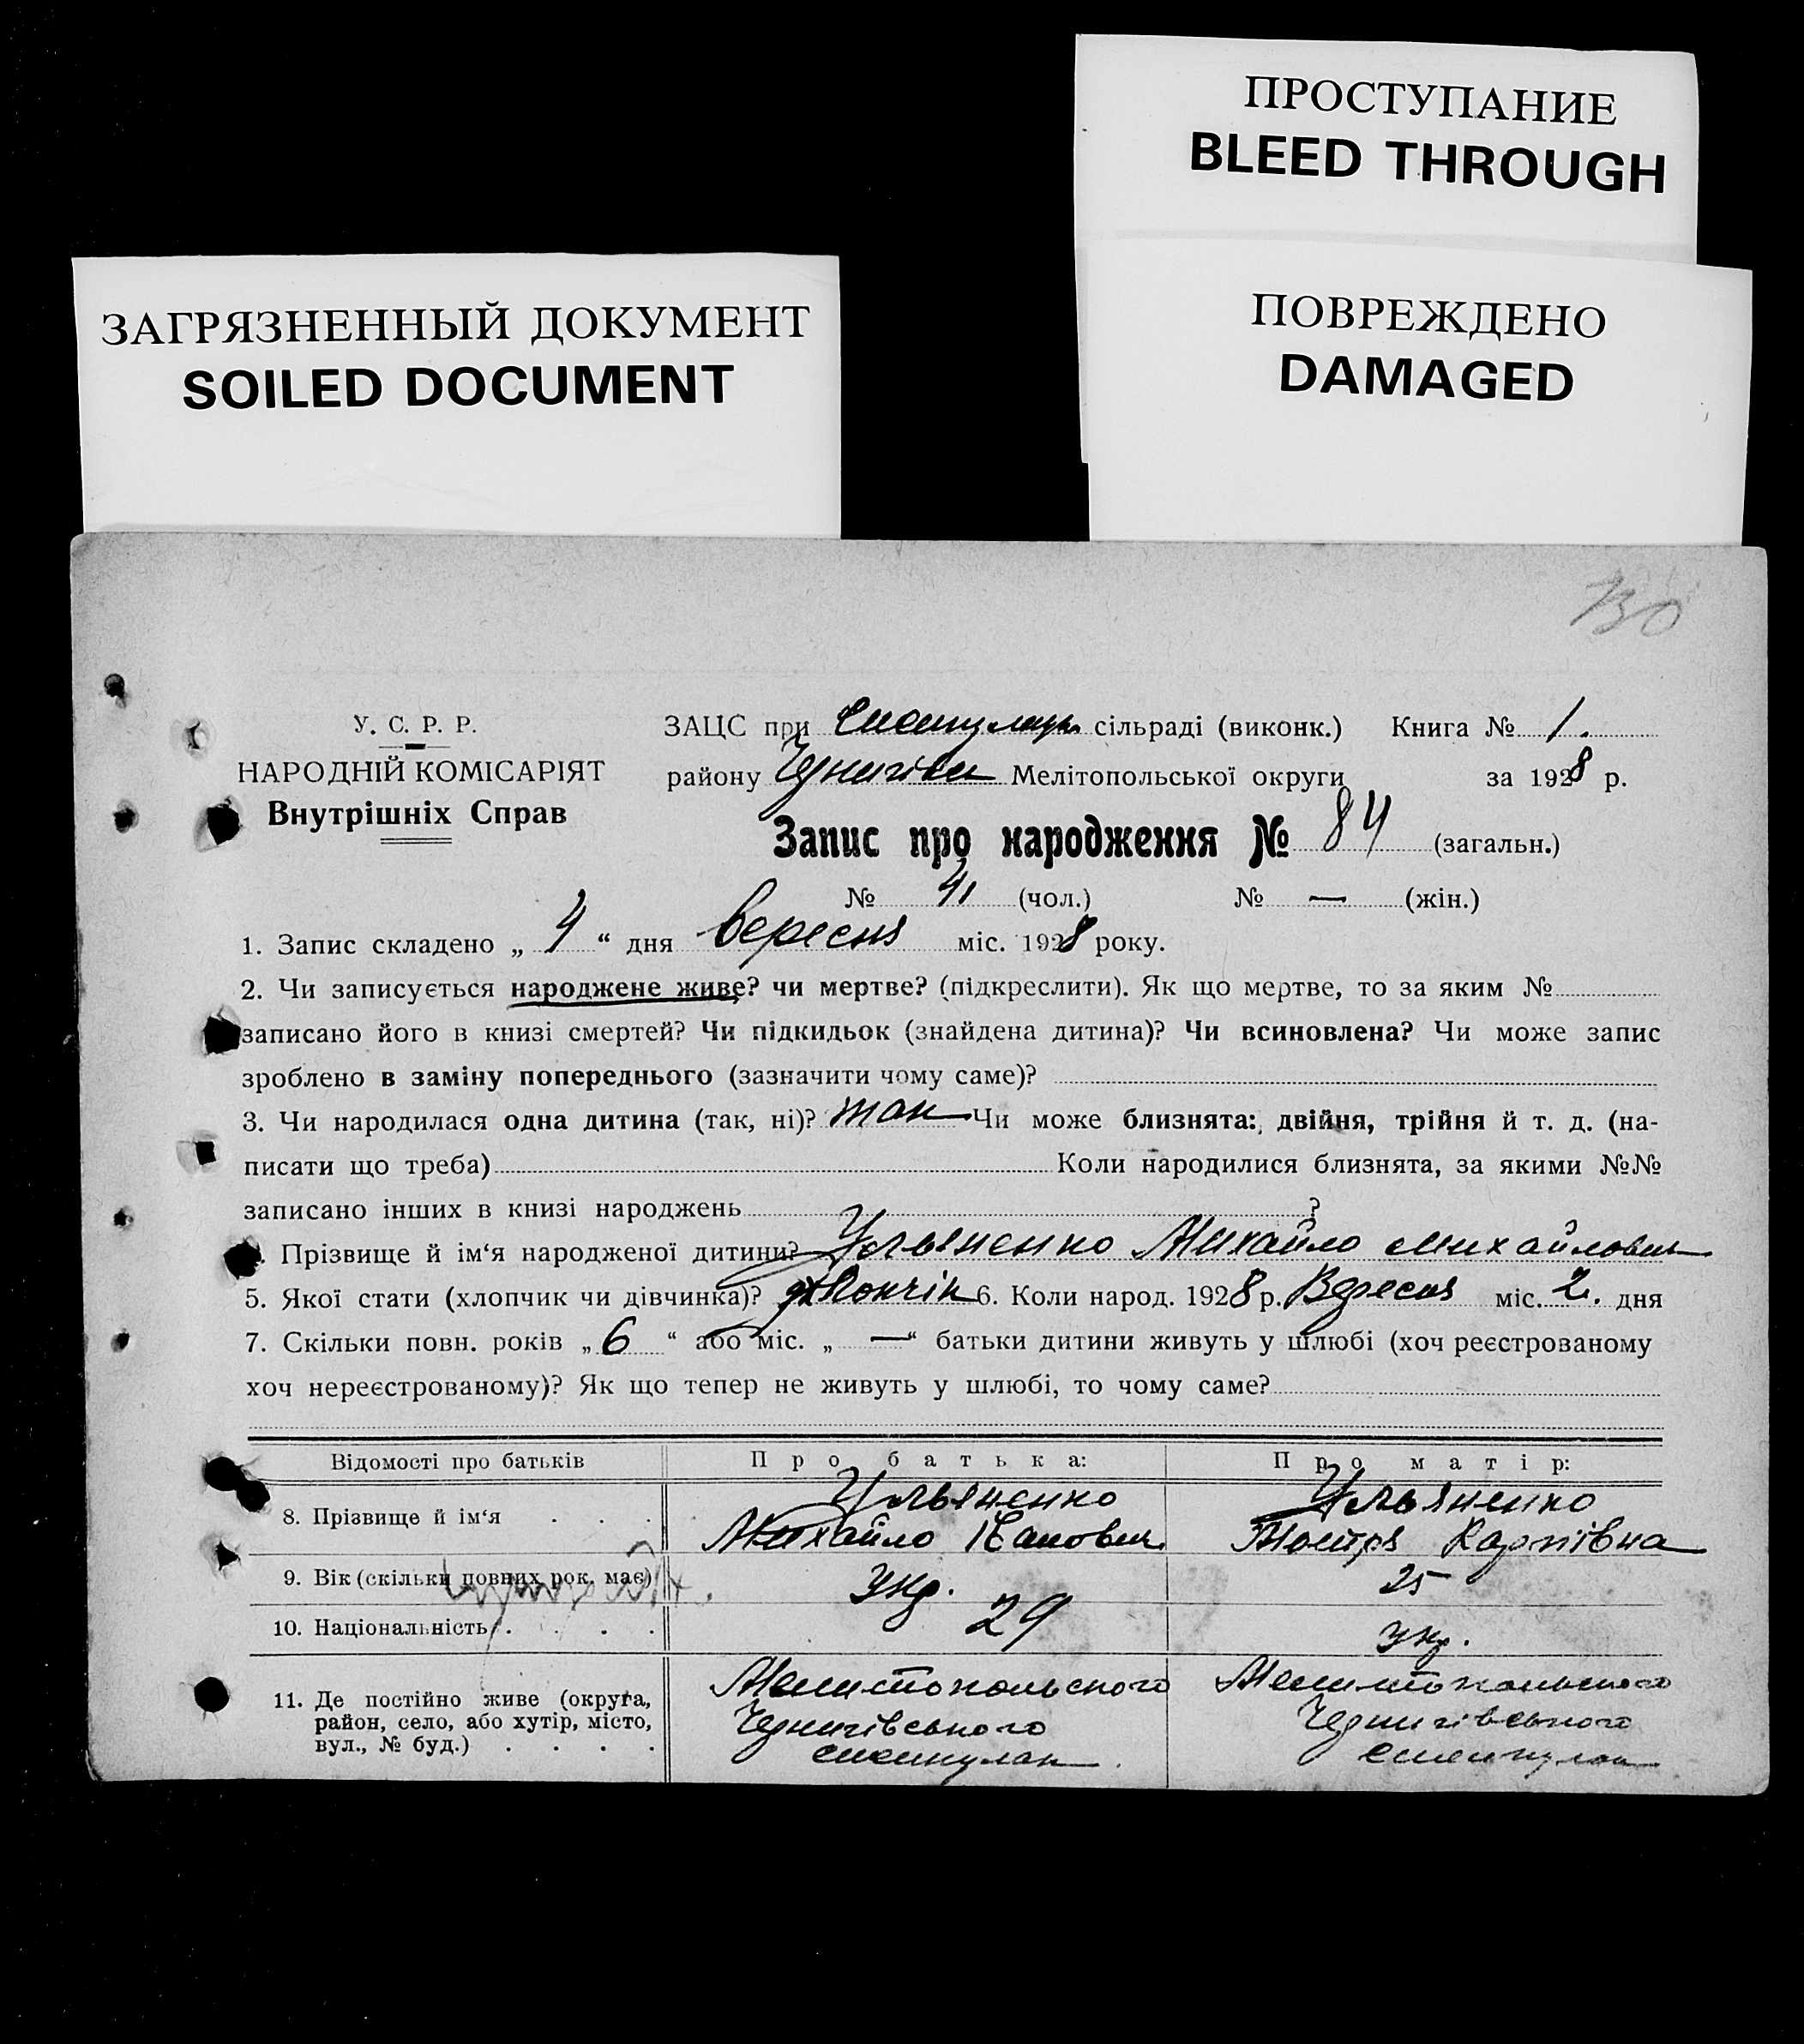 ПРОСТУПАНИЕ
BLEED THROUGH
ЗАГРЯЗНЕННЫЙ ДОКУМЕНТ
SOILED DOCUMENT
ПОВРЕЖДЕНО
DAMAGED
130
У. С. Р. Р.
НАРОДНІЙ КОМІСАРІЯТ
Внутрішніх Справ
ЗАЦС при сільраді (виконк.) Книга № 1.
району Мелітопольської округи за 1928 р.
Запис про народження № 84 (загальн.)
№ 41 (чол.) № — (жін.)
1. Запис складено „ 4 “ дня вересня міс. 1928 року.
2. Чи записується народжене живе? чи мертве? (підкреслити). Як що мертве, то за яким №
записано його в книзі смертей? Чи підкидьок (знайдена дитина)? Чи всиновлена? Чи може запис
зроблено в заміну попереднього (зазначити чому саме)?
3. Чи народилася одна дитина (так, ні)? так Чи може близнята: двійня, трійня й т. д. (на-
писати що треба) Коли народилися близнята, за якими №№
записано інших в книзі народжень ?
Прізвище й ім‘я народженої дитини? Ульяненко Михайло Михайлович
5. Якої стати (хлопчик чи дівчинка)? 6. Коли народ. 1928 р. Вересня міс. 2. дня
7. Скільки повн. років „ 6 “ або міс. „ — “ батьки дитини живуть у шлюбі (хоч реєстрованому
хоч нереєстрованому)? Як що тепер не живуть у шлюбі, то чому саме?
Відомості про батьків Про батька: Про матір:
8. Прізвище й ім‘я . . . Ульяненко Ульяненко
Михайло Карпівна
9. Вік (скільки повних рок. має) укр. 25
10. Національність . . . . 29 укр.
11. Де постійно живе (округа, Мелитопольского Мелитопольского
район, село, або хутір, місто, Чернигівського Чернигівського
вул., № буд.) . . . .